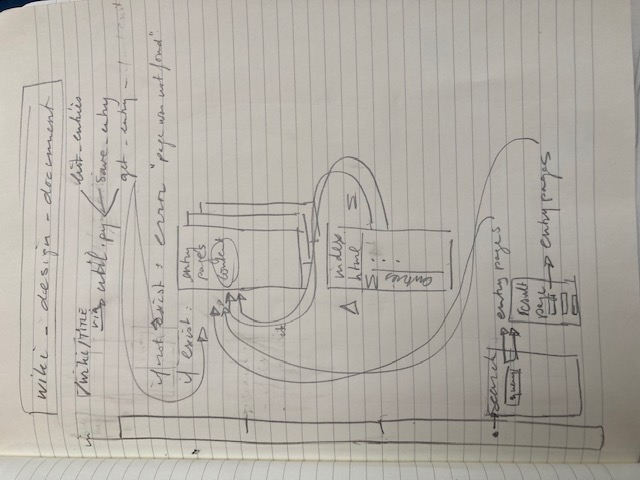 wiki_design_document
/wiki/TITLE
via
util.py
list_entries
save_entry
get_entry
if not exist : error "page was not found"
if exist :
entry
pages
content
index.
html
entries
search
query
entry pages
result
page
entry pages